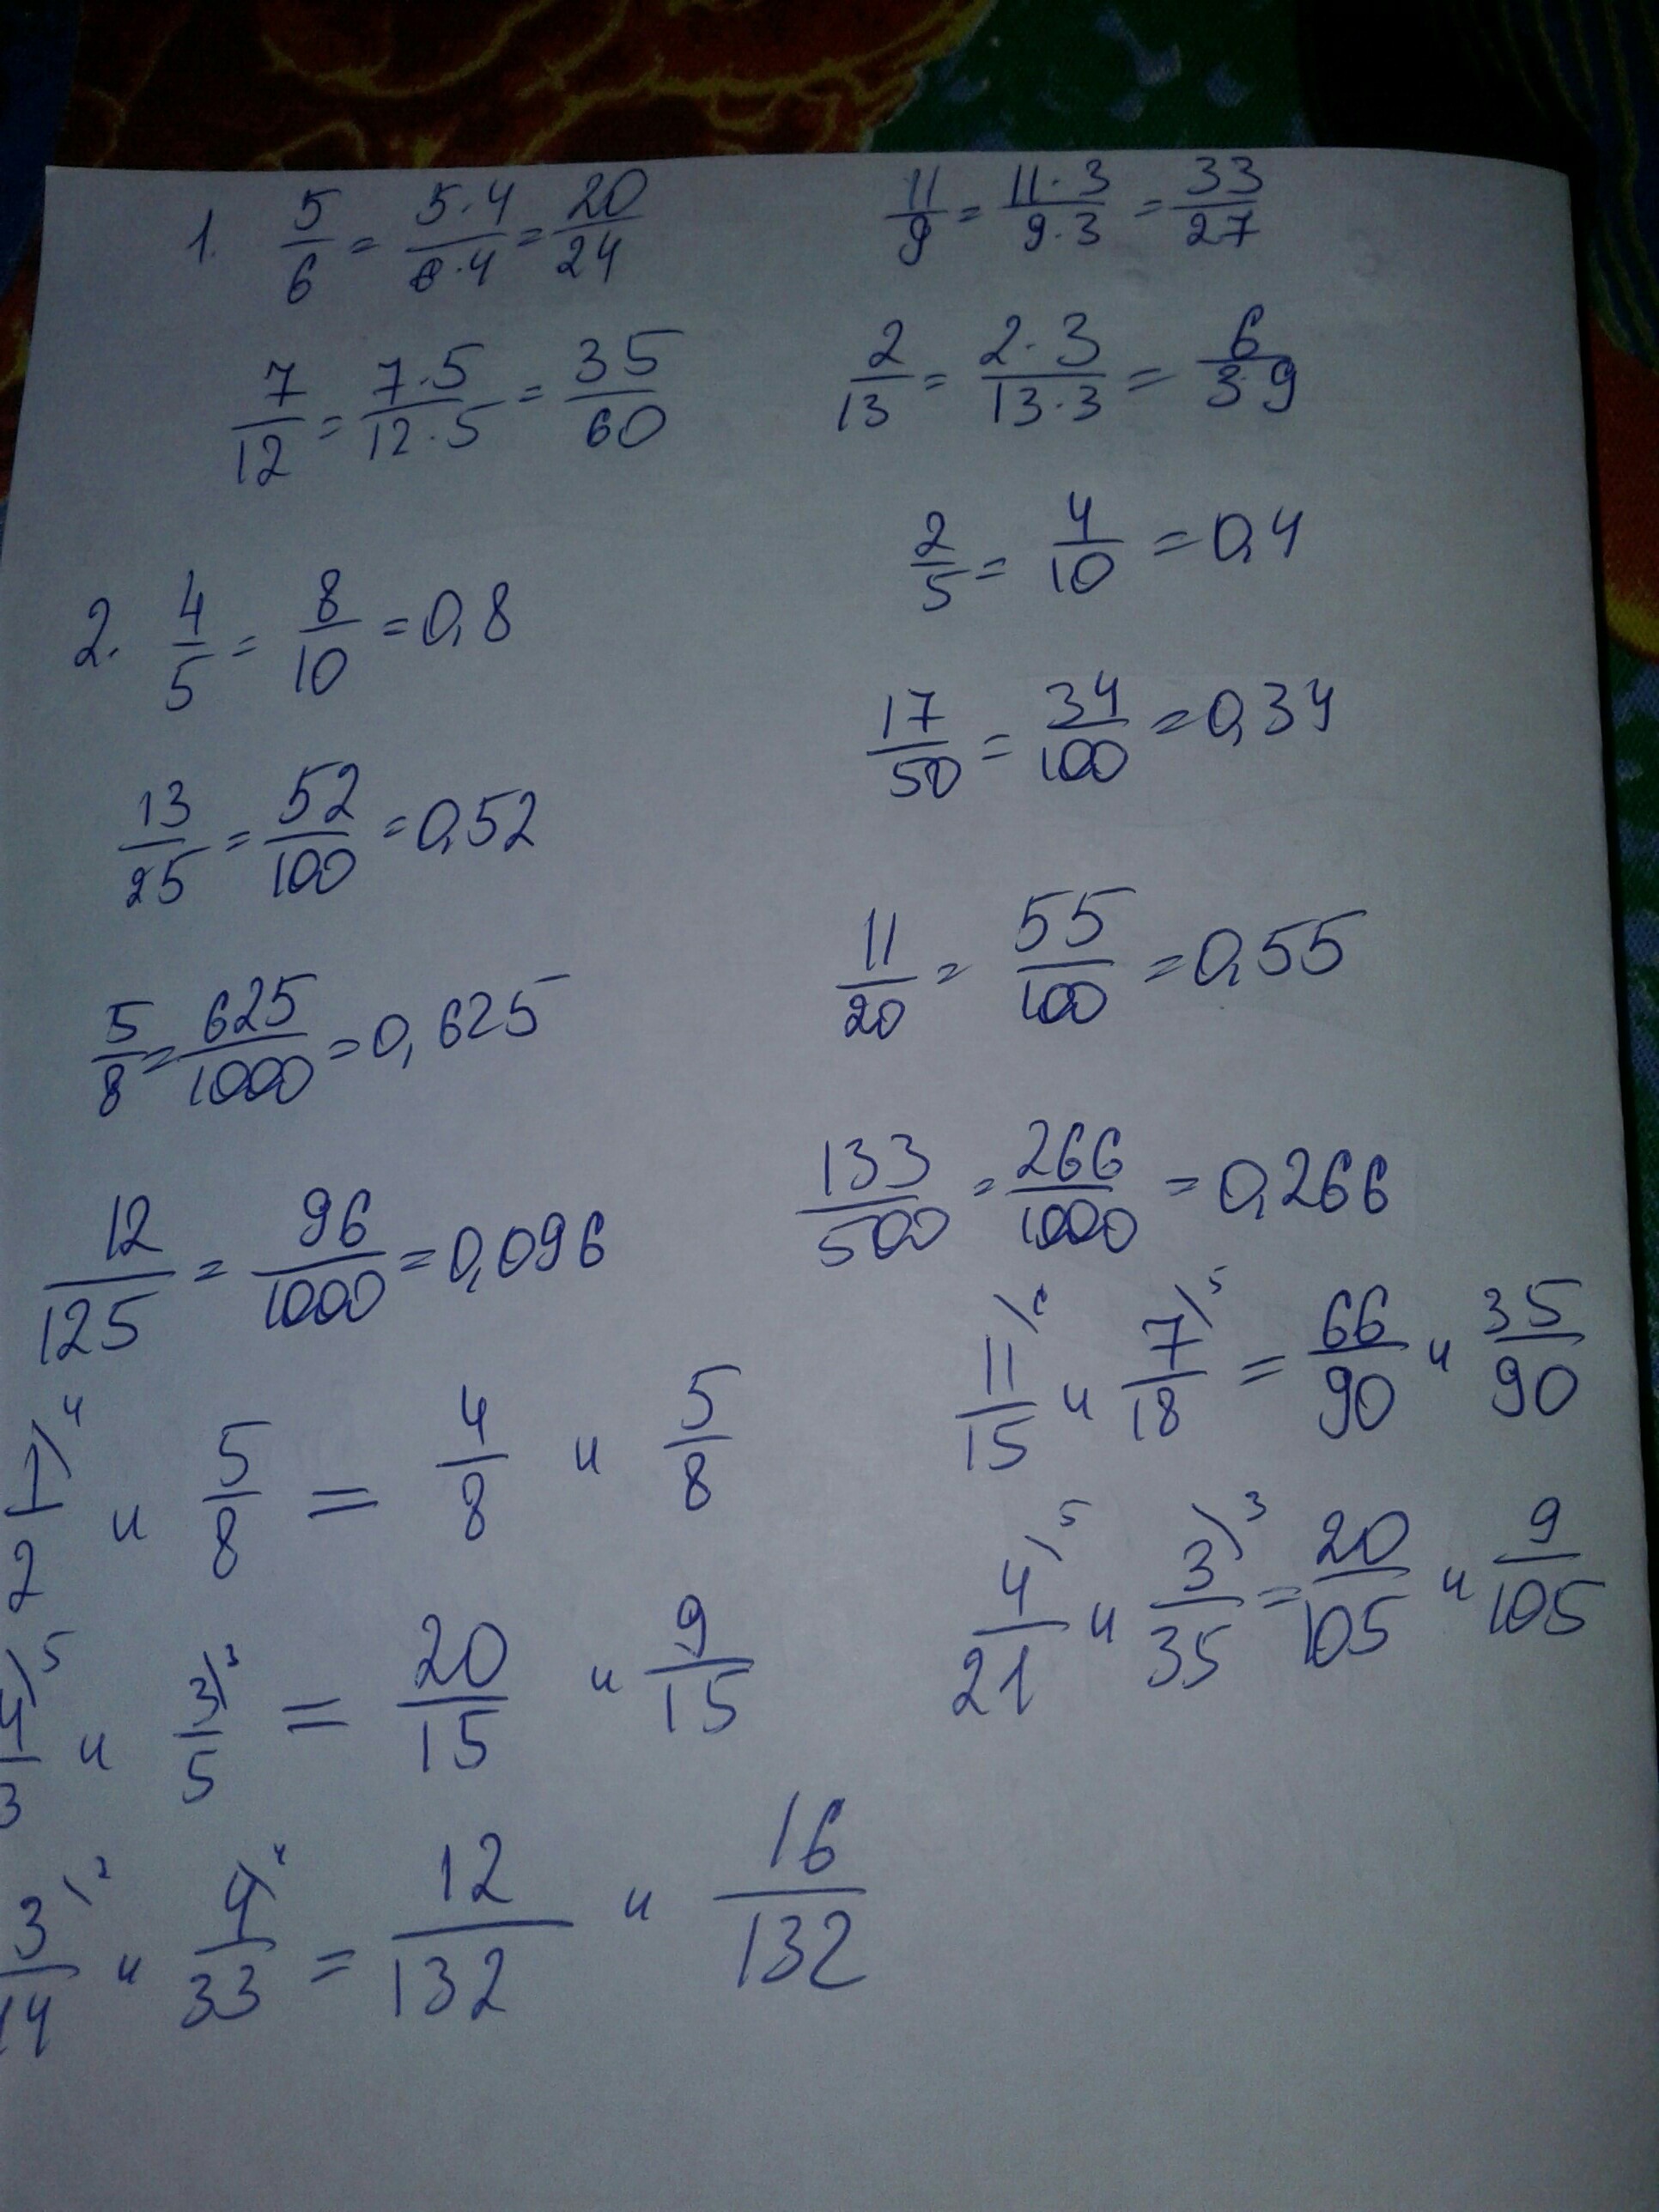 1. 5/6 = 5·4/6·4 = 20/24
11/9 = 11·3/9·3 = 33/27
7/12 = 7·5/12·5 = 35/60
2/13 = 2·3/13·3 = 6/39
2/5 = 4/10 = 0,4
2. 4/5 = 8/10 = 0,8
17/50 = 34/100 = 0,34
13/25 = 52/100 = 0,52
11/20 = 55/100 = 0,55
5/8 = 625/1000 = 0,625
133/500 = 266/1000 = 0,266
12/125 = 96/1000 = 0,096
11\6/15 и 7\5/18 = 66/90 и 35/90
1\4/2 и 5/8 = 4/8 и 5/8
4\5/21 и 3\3/35 = 20/105 и 9/105
4\5/3 и 3\3/5 = 20/15 и 9/15
3/14 и 4\4/33 = 12/132 и 16/132